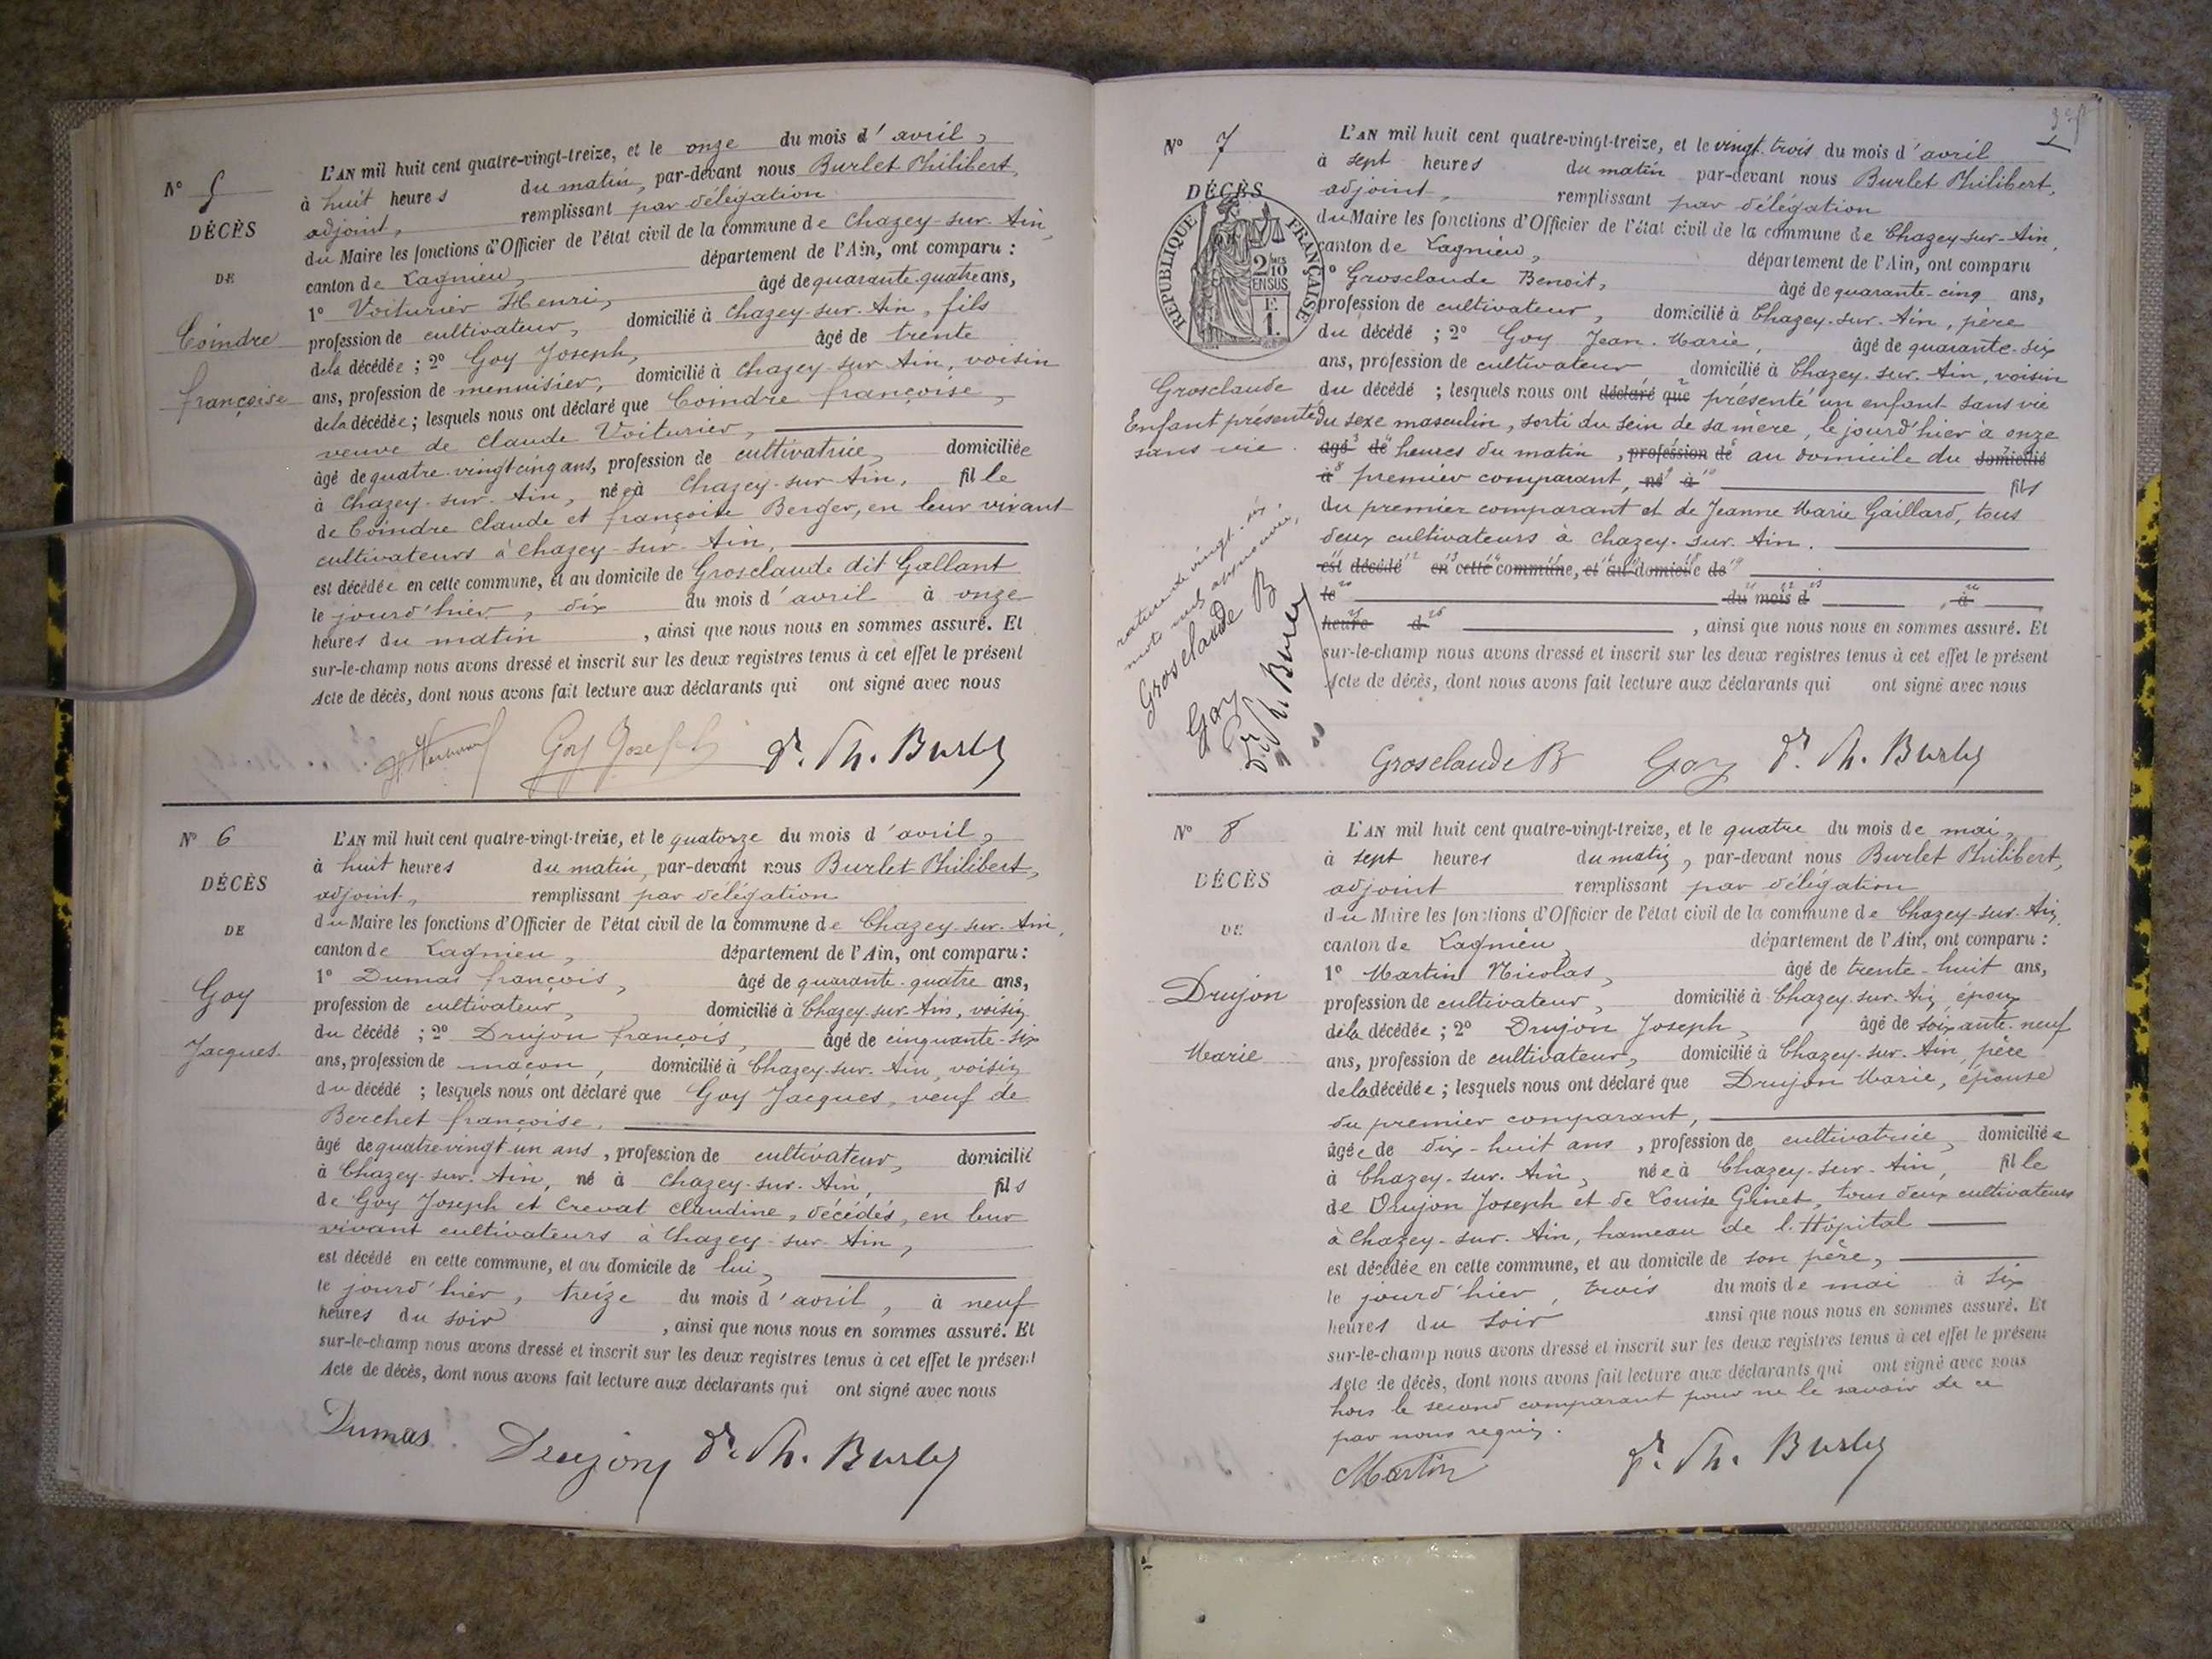 N° 5
DÉCÈS
DE
Coindre
françoise
L'AN mil huit cent quatre-vingt-treize, et le onze du mois d'avril,
à huit heures du matin, par-devant nous Burlet Philibert,
adjoint, remplissant par délégation
du Maire les fonctions d'Officier de l'état civil de la commune de Chazey-sur-Ain,
canton de Lagnieu, département de l'Ain, ont comparu :
1° Voiturier Henri, âgé de quarante-quatre ans,
profession de cultivateur, domicilié à Chazey-sur-Ain, fils
de la décédée ; 2° Goy Joseph, âgé de trente
ans, profession de menuisier, domicilié à Chazey-sur-Ain, voisin
de la décédée ; lesquels nous ont déclaré que Coindre françoise,
veuve de Claude Voiturier,
âgé de quatre-vingt cinq ans, profession de cultivatrice, domiciliée
à Chazey-sur-Ain, née à Chazey-sur-Ain, fille
de Coindre Claude et françoise Berger, en leur vivant
cultivateurs à Chazey-sur-Ain,
est décédée en cette commune, et au domicile de Grosclaude dit Gallant
le jourd'hier, dix du mois d'avril à onze
heures du matin, ainsi que nous nous en sommes assuré. Et
sur-le-champ nous avons dressé et inscrit sur les deux registres tenus à cet effet le présent
Acte de décès, dont nous avons fait lecture aux déclarants qui ont signé avec nous
Goy Joseph Dr. Ph. Burlet
N° 6
DÉCÈS
DE
Goy
Jacques.
L'AN mil huit cent quatre-vingt-treize, et le quatorze du mois d'avril,
à huit heures du matin, par-devant nous Burlet Philibert,
adjoint, remplissant par délégation
du Maire les fonctions d'Officier de l'état civil de la commune de Chazey-sur-Ain,
canton de Lagnieu, département de l'Ain, ont comparu :
1° Dumas françois, âgé de quarante-quatre ans,
profession de cultivateur, domicilié à Chazey-sur-Ain, voisin
du décédé ; 2° Drujon françois, âgé de cinquante-six
ans, profession de maçon, domicilié à Chazey-sur-Ain, voisin
du décédé ; lesquels nous ont déclaré que Goy Jacques, veuf de
Berchet françoise.
âgé de quatre vingt-un ans, profession de cultivateur, domicilié
à Chazey-sur-Ain, né à Chazey-sur-Ain, fils
de Goy Joseph et Crevat Claudine, décédés, en leur
vivant cultivateurs à Chazey-sur-Ain,
est décédé en cette commune, et au domicile de lui,
le jourd'hier, treize du mois d'avril, à neuf
heures du soir, ainsi que nous nous en sommes assuré. Et
sur-le-champ nous avons dressé et inscrit sur les deux registres tenus à cet effet le présent
Acte de décès, dont nous avons fait lecture aux déclarants qui ont signé avec nous
Dumas Drujon Dr. Ph. Burlet
N° 7
DÉCÈS
RÉPUBLIQUE FRANÇAISE
2/10 EN SUS
F. 1.
Grosclaude
Enfant présenté
sans vie.
L'AN mil huit cent quatre-vingt-treize, et le vingt-trois du mois d'avril
à sept heures du matin par-devant nous Burlet Philibert,
adjoint, remplissant par délégation
du Maire les fonctions d'Officier de l'état civil de la commune de Chazey-sur-Ain,
canton de Lagnieu, département de l'Ain, ont comparu
1° Grosclaude Benoit, âgé de quarante-cinq ans,
profession de cultivateur, domicilié à Chazey-sur-Ain, père
du décédé ; 2° Goy Jean-Marie, âgé de quarante-six
ans, profession de cultivateur domicilié à Chazey-sur-Ain, voisin
du décédé ; lesquels nous ont déclaré que présenté un enfant sans vie
du sexe masculin, sorti du sein de sa mère, le jourd'hier à onze
âgé de heures du matin, profession de au domicile du domicilié
à premier comparant, né à fils
du premier comparant et de Jeanne Marie Gaillard, tous
deux cultivateurs à Chazey-sur-Ain.
est décédé en cette commune, et au domicile de
le du mois d , à
heure d , ainsi que nous nous en sommes assuré. Et
sur-le-champ nous avons dressé et inscrit sur les deux registres tenus à cet effet le présent
Acte de décès, dont nous avons fait lecture aux déclarants qui ont signé avec nous
rature de vingt-six
mots nuls approuvée,
Grosclaude B
Goy
Dr. Ph. Burlet
Grosclaude B Goy Dr. Ph. Burlet
N° 8
DÉCÈS
DE
Drujon
Marie
L'AN mil huit cent quatre-vingt-treize, et le quatre du mois de mai,
à sept heures du matin, par-devant nous Burlet Philibert,
adjoint remplissant par délégation
du Maire les fonctions d'Officier de l'état civil de la commune de Chazey-sur-Ain,
canton de Lagnieu, département de l'Ain, ont comparu :
1° Martin Nicolas, âgé de trente-huit ans,
profession de cultivateur, domicilié à Chazey-sur-Ain, époux
de la décédée ; 2° Drujon Joseph, âgé de soixante-neuf
ans, profession de cultivateur, domicilié à Chazey-sur-Ain, père
de la décédée ; lesquels nous ont déclaré que Drujon Marie, épouse
du premier comparant,
âgée de dix-huit ans, profession de cultivatrice, domiciliée
à Chazey-sur-Ain, née à Chazey-sur-Ain, fille
de Drujon Joseph et de Louise Ginet, tous deux cultivateurs
à Chazey-sur-Ain, hameau de l'Hôpital
est décédée en cette commune, et au domicile de son père,
le jourd'hier, trois du mois de mai à six
heures du soir ainsi que nous nous en sommes assuré. Et
sur-le-champ nous avons dressé et inscrit sur les deux registres tenus à cet effet le présent
Acte de décès, dont nous avons fait lecture aux déclarants qui ont signé avec nous
hors le second comparant pour ne le savoir de ce
par nous requis.
Martin Dr. Ph. Burlet